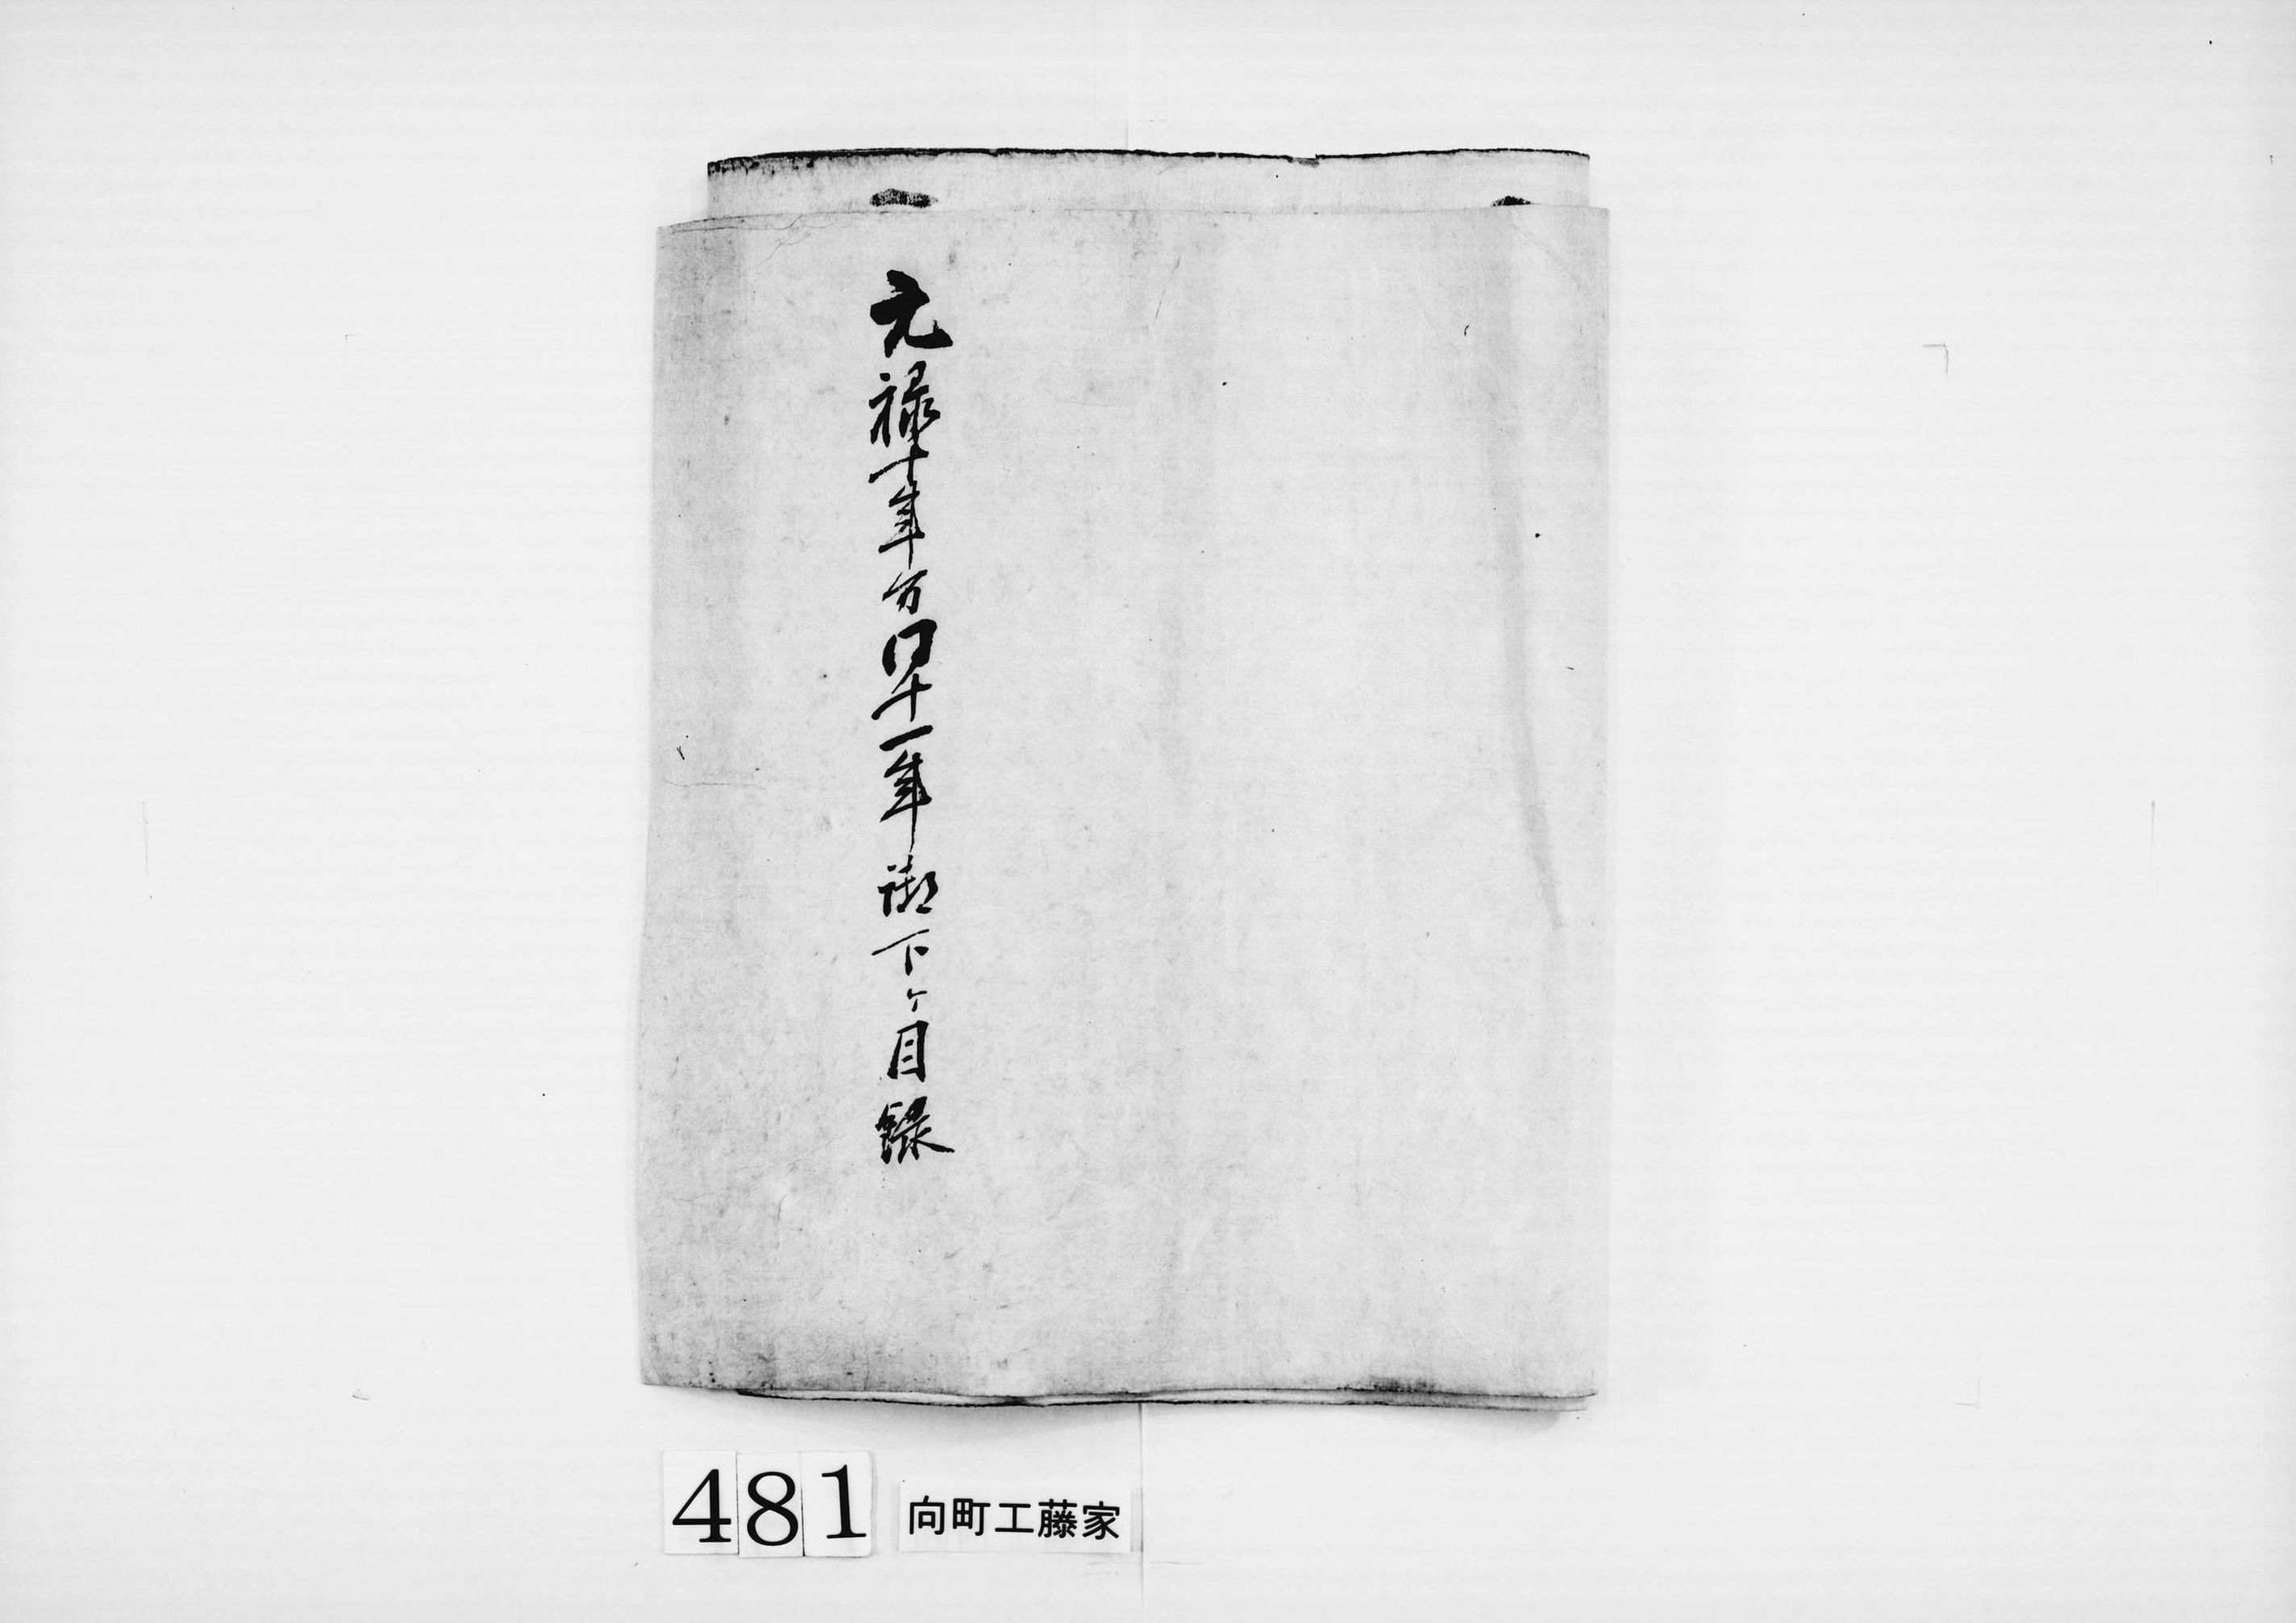 元禄十年分同十一年御下ヶ目録
481
向町工藤家